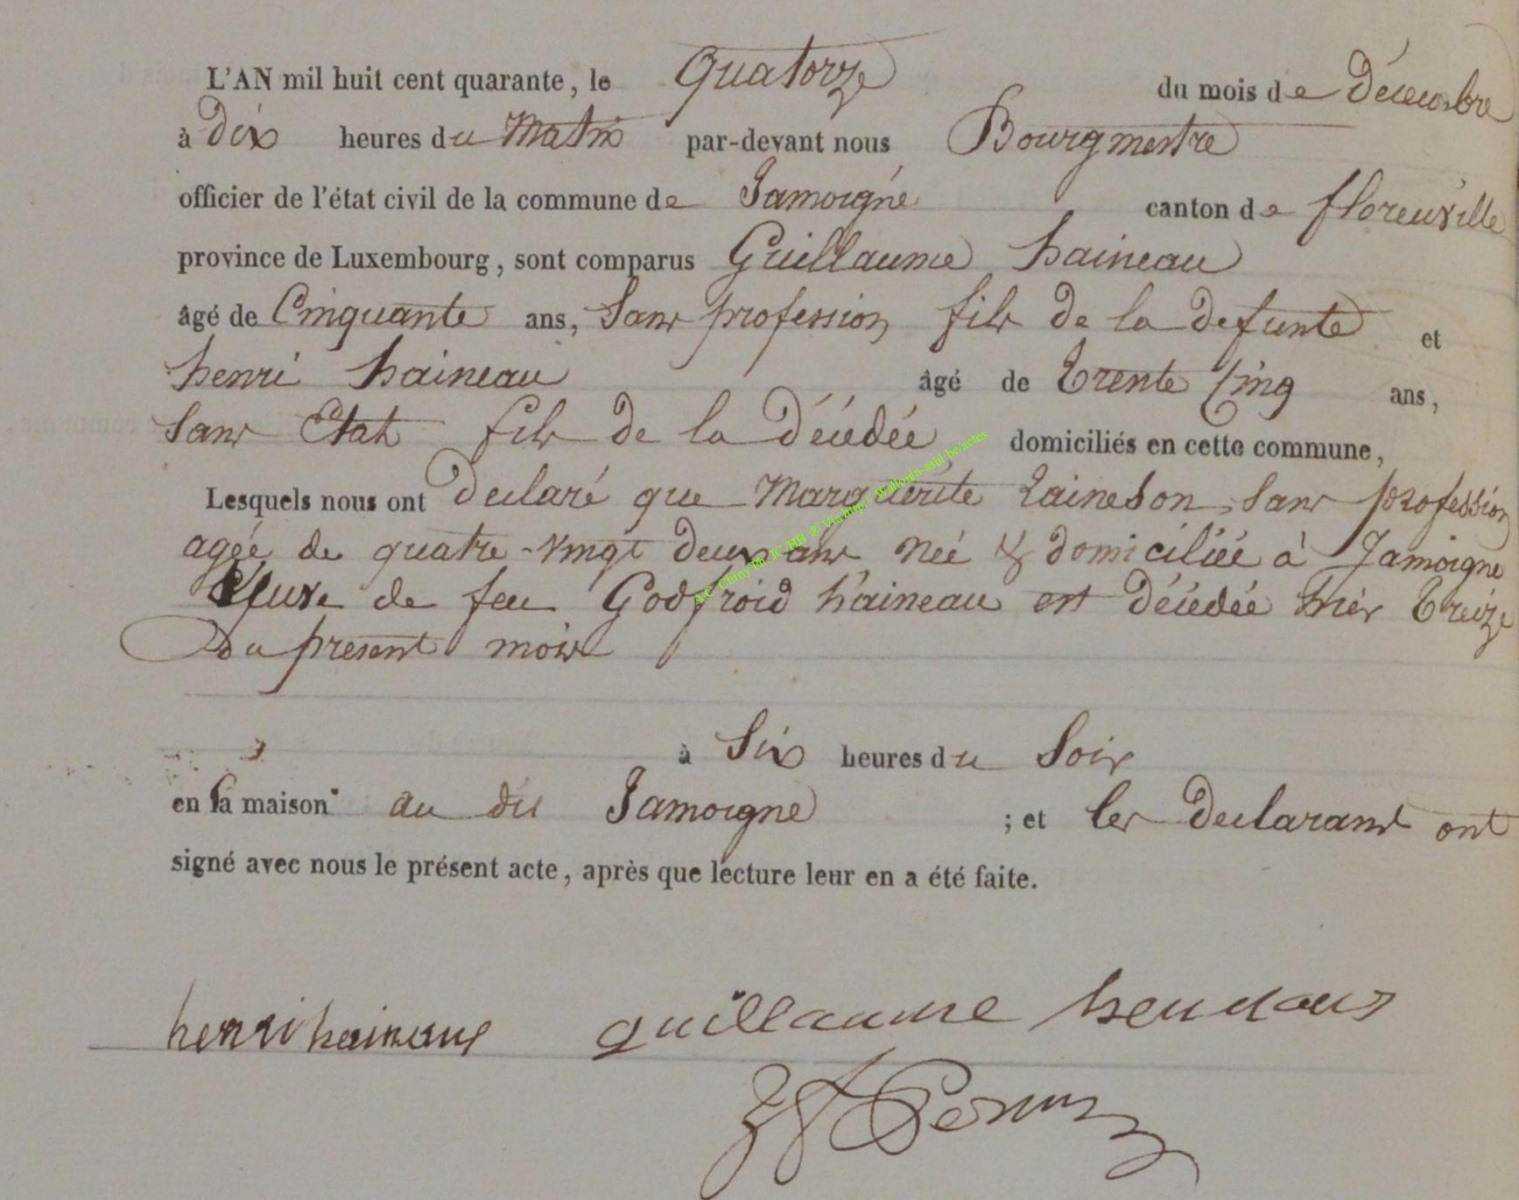 L'AN mil huit cent quarante, le Quatorze du mois de décembre
à dix heures du Matin par-devant nous Bourgmestre
officier de l'état civil de la commune de Jamoigne canton de florenville
province de Luxembourg, sont comparus Guillaume haineau
âgé de Cinquante ans, Sans profession fils de la defunte et
henri haineau âgé de trente Cinq ans,
Sans Etat fils de la décédée domiciliés en cette commune,
Lesquels nous ont declaré que Marguerite Laineson, Sans profession
agée de quatre-vingt deux ans, née & domiciliée à Jamoigne
de feu Godfroid haineau est décédée hier treize
du présent mois
à Six heures du Soir
en sa maison au dit Jamoigne ; et les declarans ont
signé avec nous le présent acte, après que lecture leur en a été faite.
henri hainaux guillaume